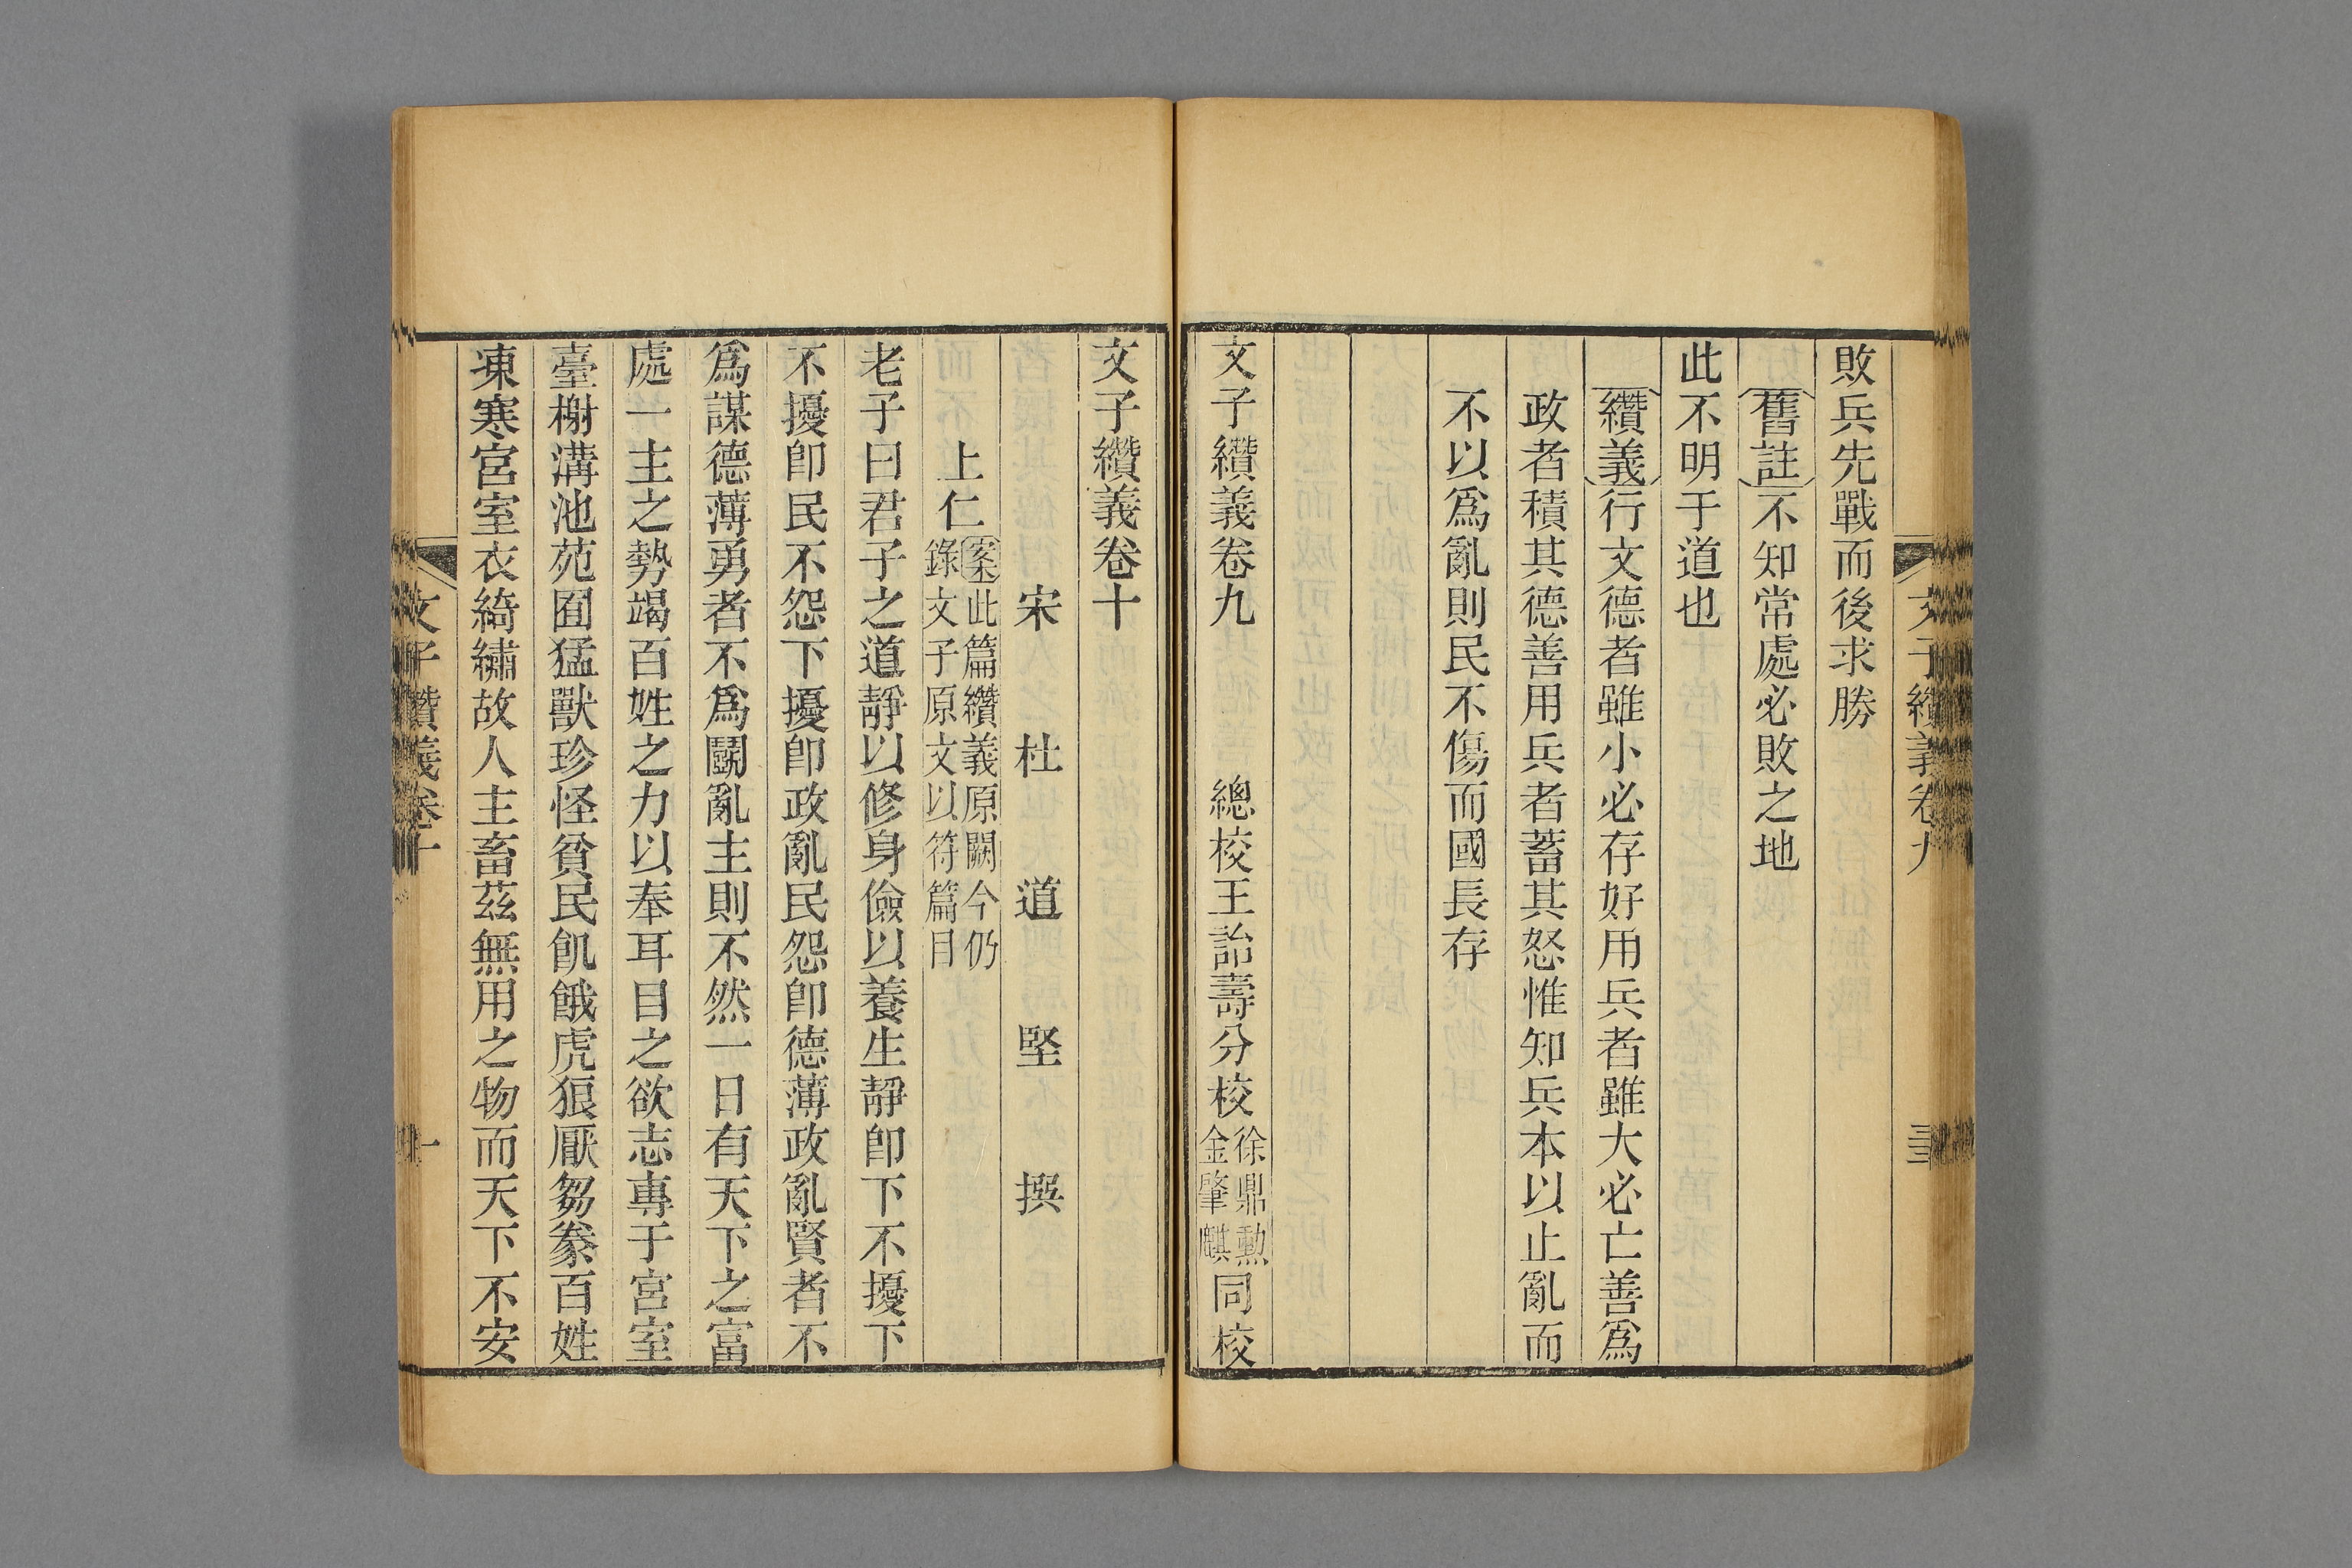 敗兵先戰而後求勝
舊註不知常處必敗之地
此不明于道也
纘義行文德者雖小必存好用兵者雖大必亡善爲
政者積其德善用兵者蓄其怒惟知兵本以止亂而
不以爲亂則民不傷而國長存
文子纘義卷九　總校王詒壽分校徐鼎勳金肇麒同校
文子纘義卷十
宋　杜　道　堅　撰
上仁案此篇纘義原闕今仍錄文子原文以符篇目
老子曰君子之道靜以修身儉以養生靜卽下不擾下
不擾卽民不怨下擾卽政亂民怨卽德薄政亂賢者不
爲謀德薄勇者不爲鬭亂主則不然一日有天下之富
處一主之勢竭百姓之力以奉耳目之欲志專于宮室
臺榭溝池苑囿猛獸珍怪貧民飢餓虎狼厭芻豢百姓
凍寒宮室衣綺繡故人主畜茲無用之物而天下不安
文子纘義卷十　一